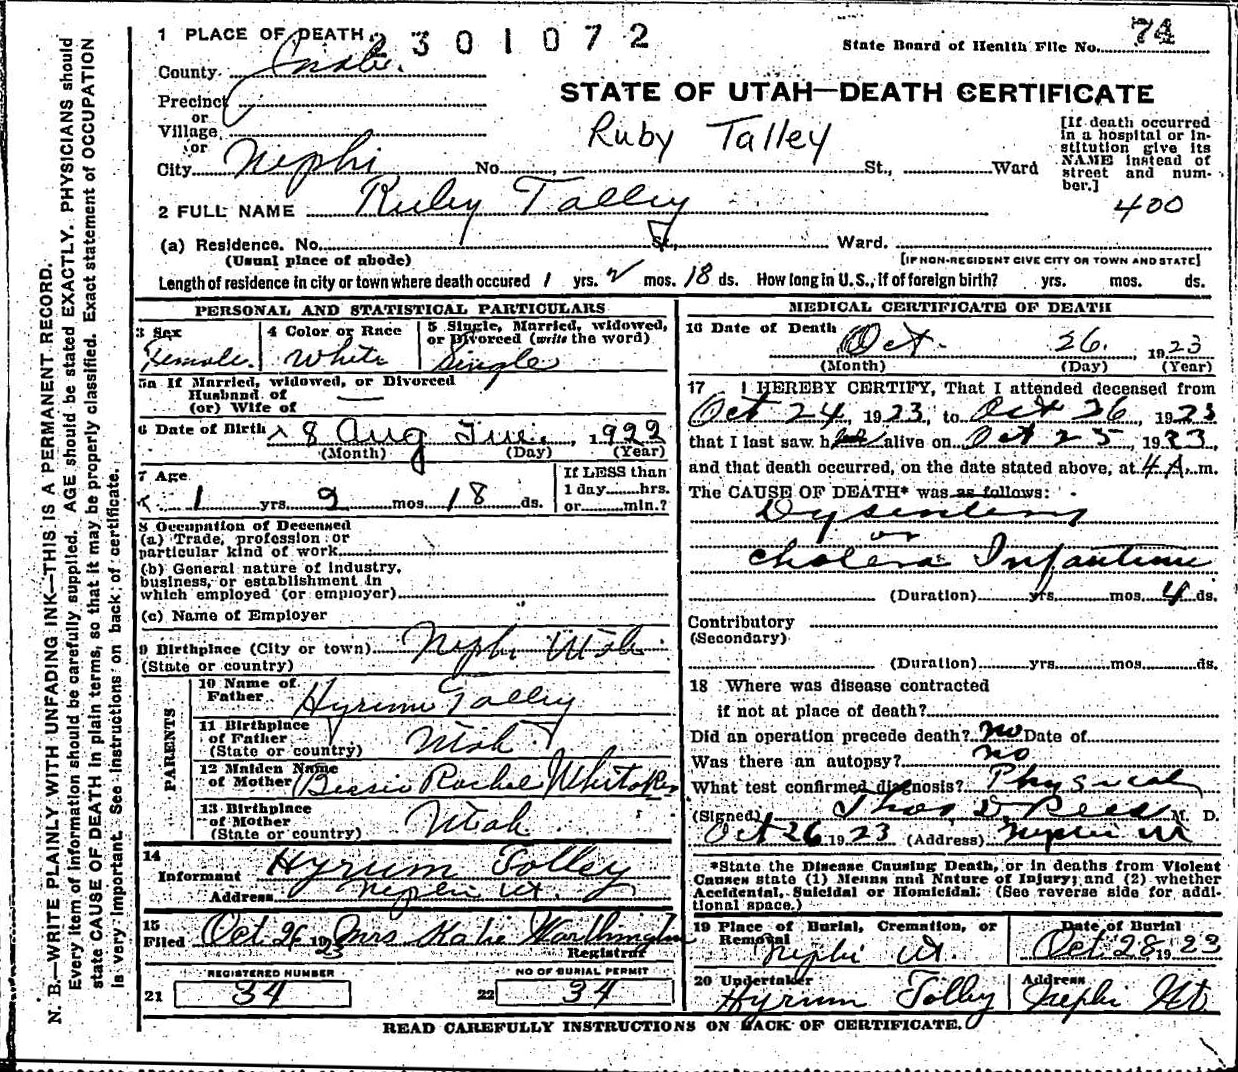 1 PLACE OF DEATH
2301072
State Board of Health File No. 74
County Juab.
Precinct
or
Village
or
City Nephi No. St., Ward
STATE OF UTAH—DEATH CERTIFICATE
Ruby Talley
[If death occurred in a hospital or institution give its NAME instead of street and number.]
400
2 FULL NAME Ruby Talley
(a) Residence. No. St., Ward.
(Usual place of abode) [IF NON-RESIDENT GIVE CITY OR TOWN AND STATE]
Length of residence in city or town where death occured 1 yrs. 2 mos. 18 ds. How long in U.S., if of foreign birth? yrs. mos. ds.
PERSONAL AND STATISTICAL PARTICULARS
3 Sex
Female.
4 Color or Race
White
5 Single, Married, widowed, or Divorced (write the word)
Single
5a If Married, widowed, or Divorced
Husband of
(or) Wife of —
6 Date of Birth 8 Aug Tue. 1922
(Month) (Day) (Year)
7 Age
1 yrs. 2 mos. 18 ds.
If LESS than
1 day hrs.
or min.?
8 Occupation of Deceased
(a) Trade, profession or
particular kind of work
(b) General nature of industry,
business, or establishment in
which employed (or employer)
(c) Name of Employer
9 Birthplace (City or town) Nephi Utah
(State or country)
PARENTS
10 Name of Father Hyrum Talley
11 Birthplace of Father Utah
(State or country)
12 Maiden Name of Mother Bessie Rachel Whitaker
13 Birthplace of Mother Utah
(State or country)
14
Informant Hyrum Tolley
Address Nephi Ut.
15
Filed Oct 26 1923 Mrs Katie Worthington
Registrar
REGISTERED NUMBER
21 34
NO OF BURIAL PERMIT
22 34
MEDICAL CERTIFICATE OF DEATH
16 Date of Death Oct. 26. 1923
(Month) (Day) (Year)
17 I HEREBY CERTIFY, That I attended deceased from
Oct 24, 1923, to Oct 26 1923
that I last saw her alive on Oct 25, 1923,
and that death occurred, on the date stated above, at 4 A. m.
The CAUSE OF DEATH* was as follows:
Dysentery
or
Cholera Infantum
(Duration) yrs. mos. 4 ds.
Contributory
(Secondary)
(Duration) yrs. mos. ds.
18 Where was disease contracted
if not at place of death?
Did an operation precede death? no Date of
Was there an autopsy? no
What test confirmed diagnosis? Physical
(Signed) Thos D Rees M. D.
Oct 26 1923 (Address) Nephi Ut
*State the Disease Causing Death, or in deaths from Violent
Causes state (1) Means and Nature of Injury; and (2) whether
Accidental, Suicidal or Homicidal. (See reverse side for additional space.)
19 Place of Burial, Cremation, or Removal
Nephi Ut.
Date of Burial
Oct 28 1923
20 Undertaker
Hyrum Tolley
Address
Nephi Ut.
READ CAREFULLY INSTRUCTIONS ON BACK OF CERTIFICATE.
N. B.—WRITE PLAINLY WITH UNFADING INK—THIS IS A PERMANENT RECORD.
Every item of information should be carefully supplied. AGE should be stated EXACTLY. PHYSICIANS should
state CAUSE OF DEATH in plain terms, so that it may be properly classified. Exact statement of OCCUPATION
is very important. See instructions on back of certificate.